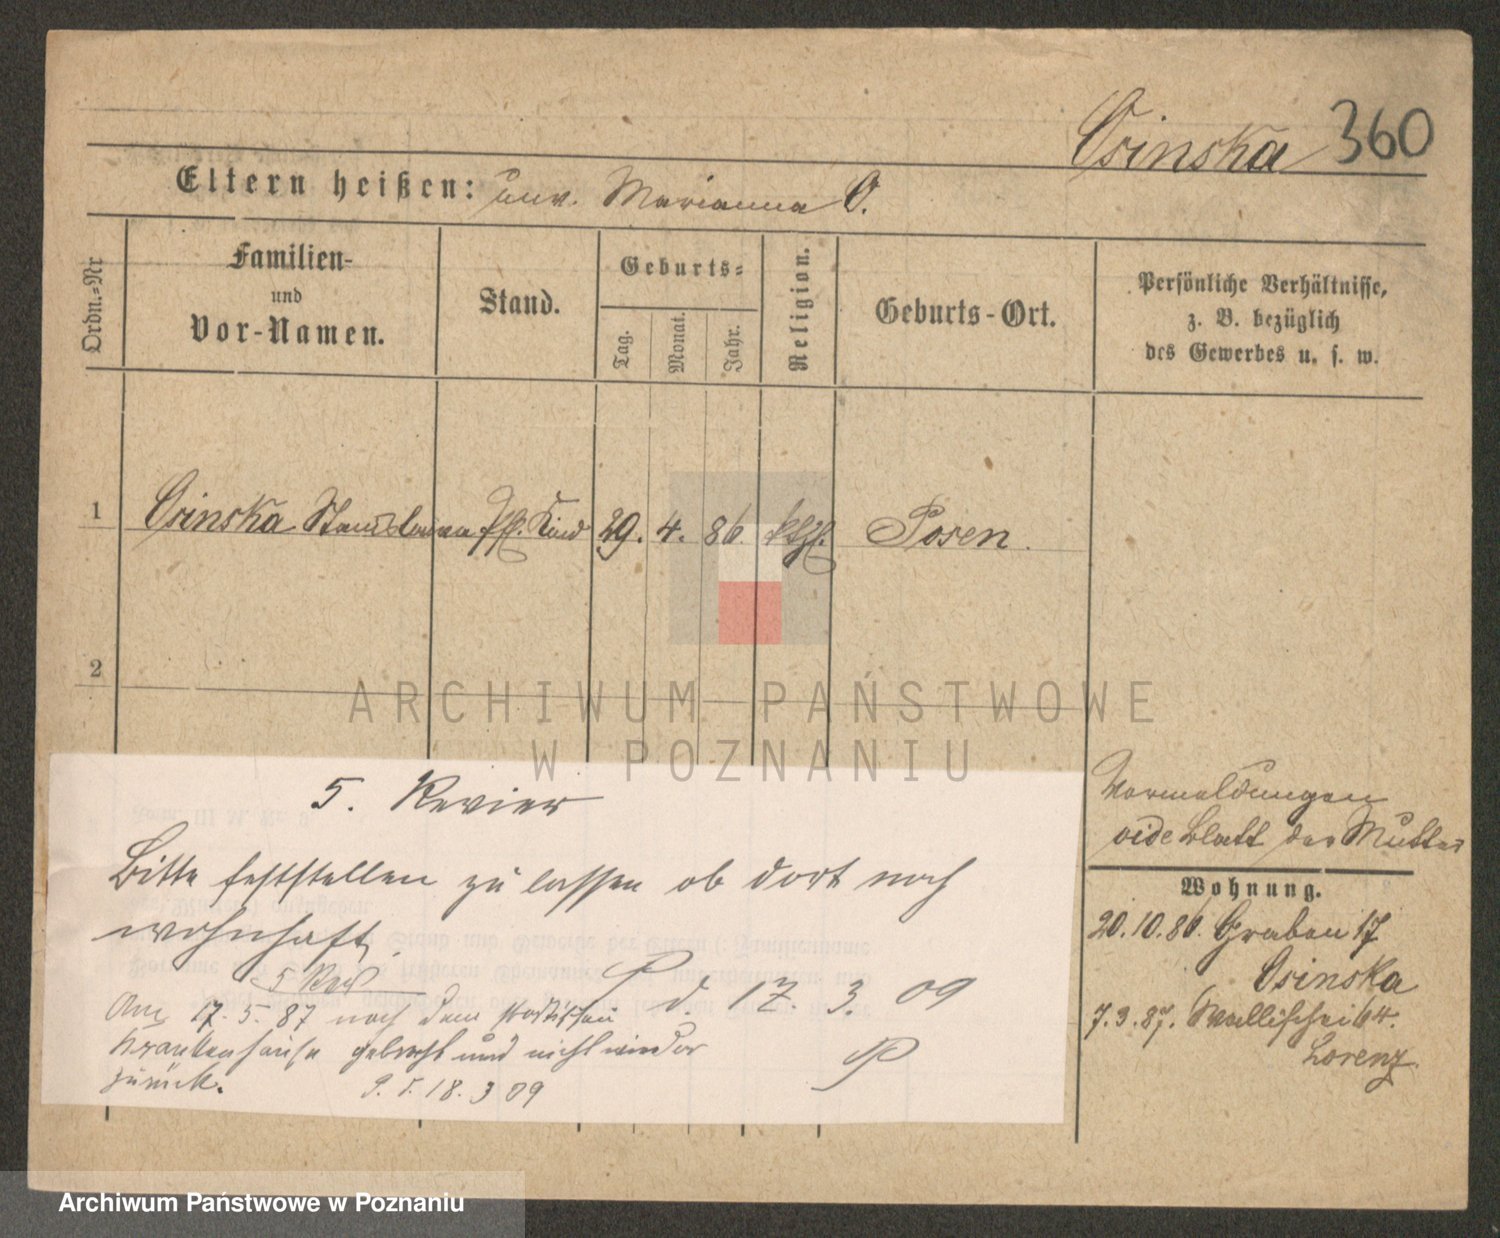 Osinska 360
Eltern heißen: unv. Marianna O.
Ordn.-Nr
Familien-
und
Vor-Namen.
Stand.
Geburts-
Tag.
Monat.
Jahr.
Religion.
Geburts-Ort.
Persönliche Verhältnisse,
z. B. bezüglich
des Gewerbes u. s. w.
1 Osinska Stanislawa Pfl. Kind 29. 4. 86. kth. Posen.
2
ARCHIWUM PAŃSTWOWE
W POZNANIU
Vormeldungen
vide Blatt der Mutter
Wohnung.
20.10.86. Graben 17
Osinska
7.3.87. Wallischei 64.
Lorenz.
5. Revier
Bitte feststellen zu lassen ob dort noch
wohnhaft.
P d. 17. 3. 09
5 Rev
Am 17. 5. 87 nach dem städtischen
Krankenhause gebracht und nicht wieder
zurück.
P. 5. 18. 3 09
P
Archiwum Państwowe w Poznaniu